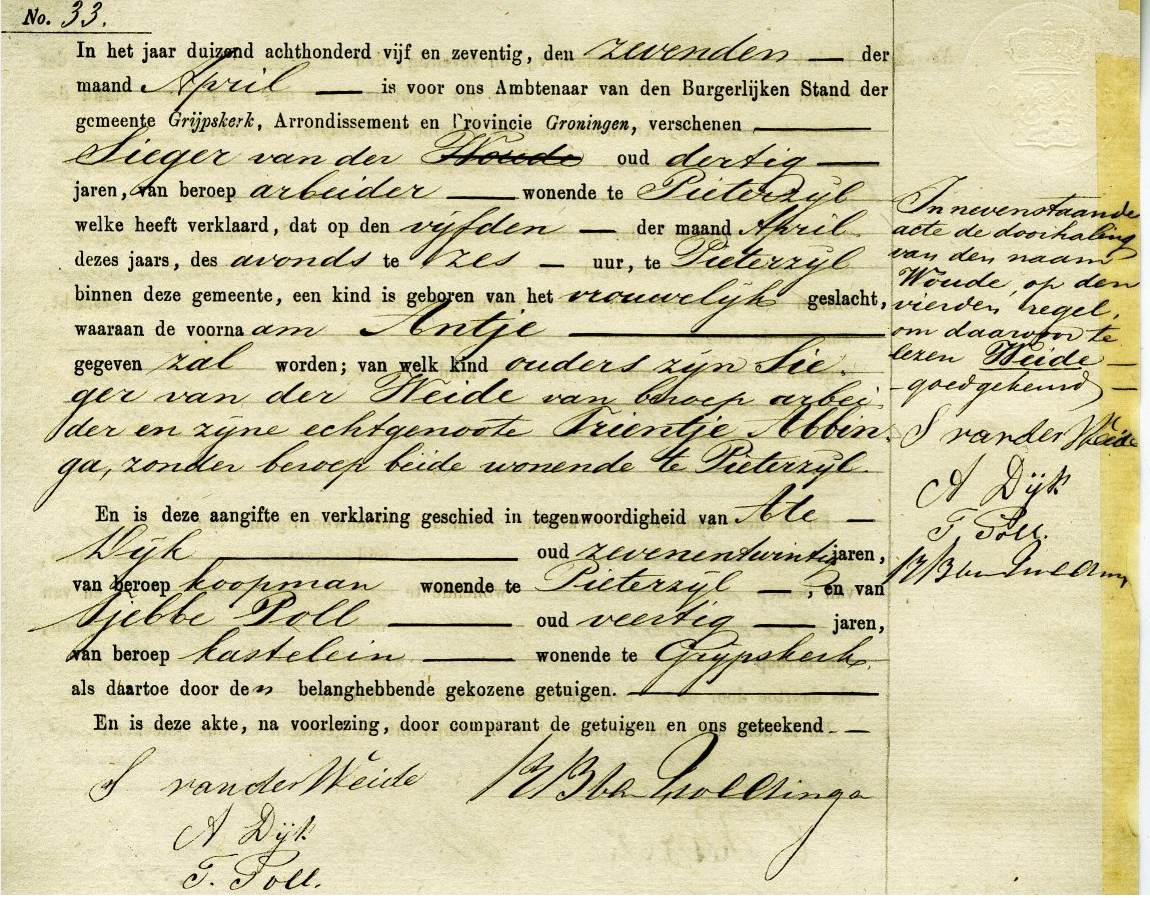 No. 33.
In het jaar duizend achthonderd vijf en zeventig, den zevenden — der
maand April — is voor ons Ambtenaar van den Burgerlijken Stand der
gemeente Grijpskerk, Arrondissement en Provincie Groningen, verschenen
Sieger van der Woude oud dertig —
jaren, van beroep arbeider — wonende te Pieterzyl
welke heeft verklaard, dat op den vijfden — der maand April
dezes jaars, des avonds te zes — uur, te Pieterzyl
binnen deze gemeente, een kind is geboren van het vrouwelijk geslacht,
waaraan de voornaam Antje —
gegeven zal worden; van welk kind ouders zyn Sie-
ger van der Weide van beroep arbei-
der en zyne echtgenoote Trientje Abbin-
ga, zonder beroep beide wonende te Pieterzyl
En is deze aangifte en verklaring geschied in tegenwoordigheid van Ate —
Dijk — oud zevenentwintig jaren,
van beroep koopman wonende te Pieterzyl — , en van
Tjebbe Poll — oud veertig — jaren,
van beroep kastelein — wonende te Grypskerk
als daartoe door den belanghebbende gekozene getuigen. —
En is deze akte, na voorlezing, door comparant de getuigen en ons geteekend —
S van der Weide
A Dijk
T. Poll.
In nevenstaande
acte de doorhaling
van den naam
Woude, op den
vierden regel,
om daarvoor te
lezen Weide —
goedgekeurd —
S van der Weide
A Dijk
T. Poll.